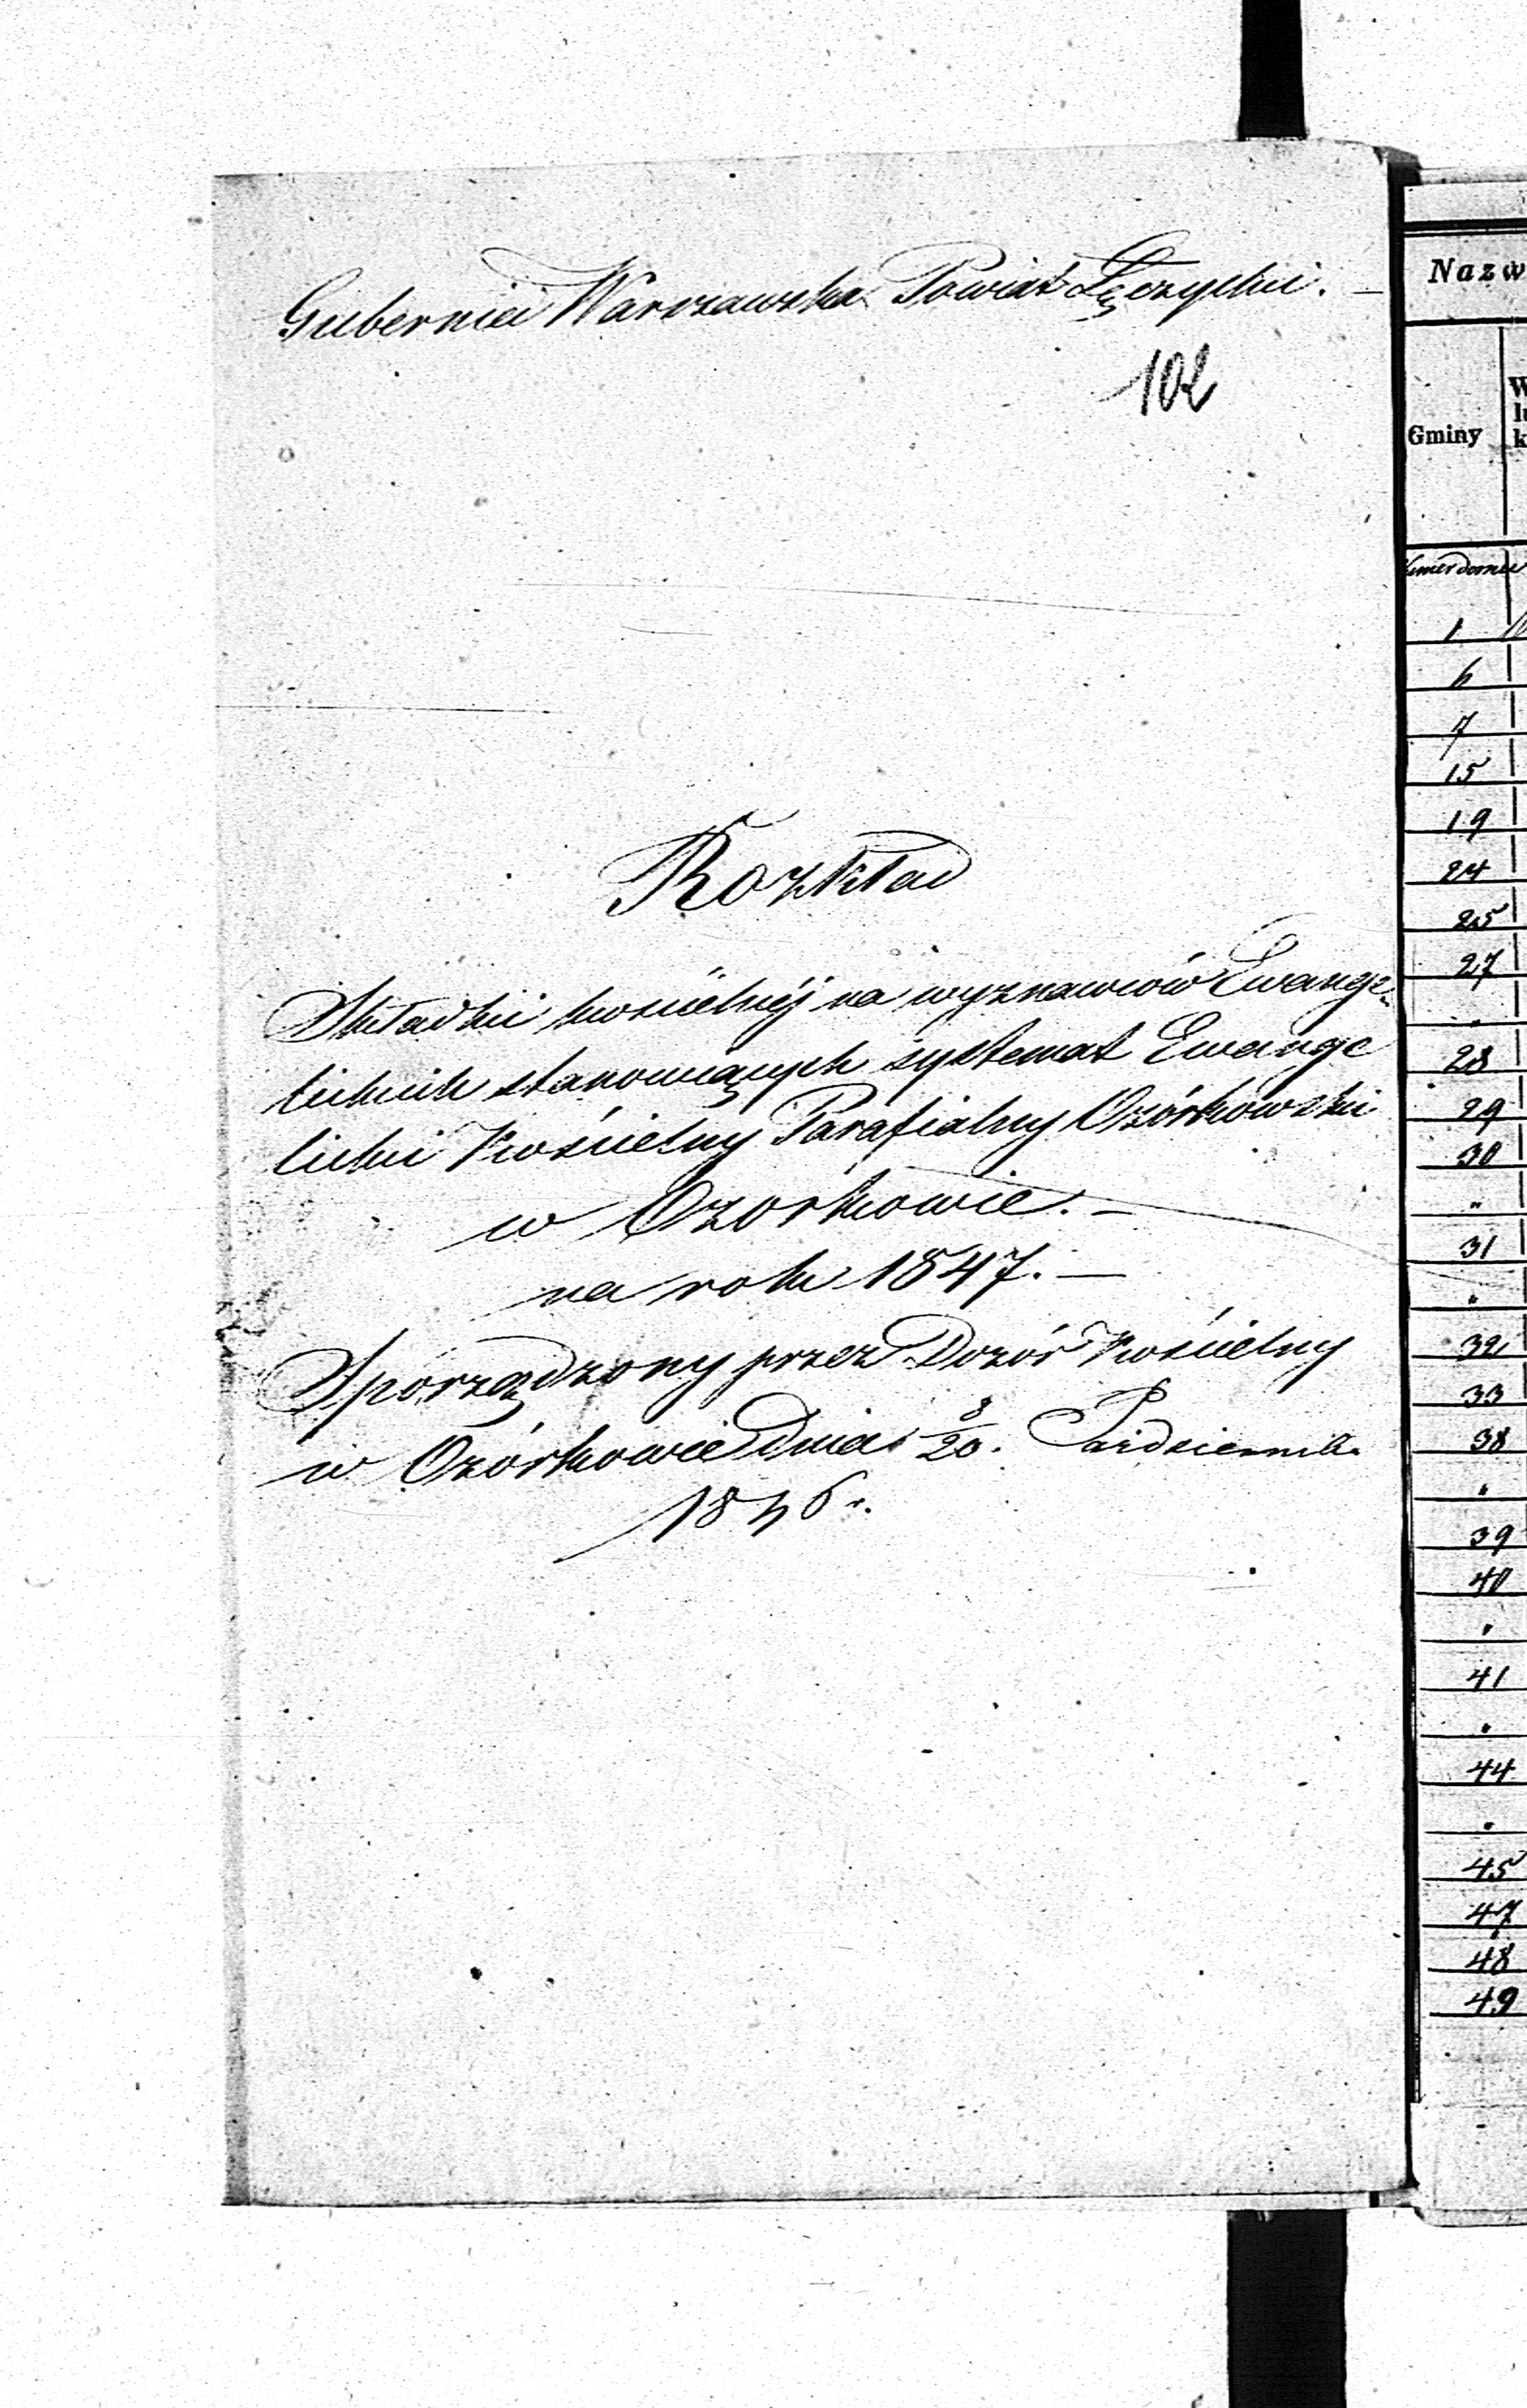 Gubernia Warszawska Powiat Łęczycki. —
102
Rozkład
Składki kościelnéj na wyznawców Ewange-
lickich stanowiących systemat Ewange
licki Kościelny Parafialny Ozórkowski
w Ozorkowie. —
na rok 1847. —
Sporządzony przez Dozór Kościelny
w Ozórkowie Dnia 8/20. Październik
1846 r.
Nazw
Gminy
Numer domu
1
6
7
15
19
24
25
27
"
28
29
30
"
31
"
32
33
38
"
39
40
"
41
"
44
"
45
47
48
49